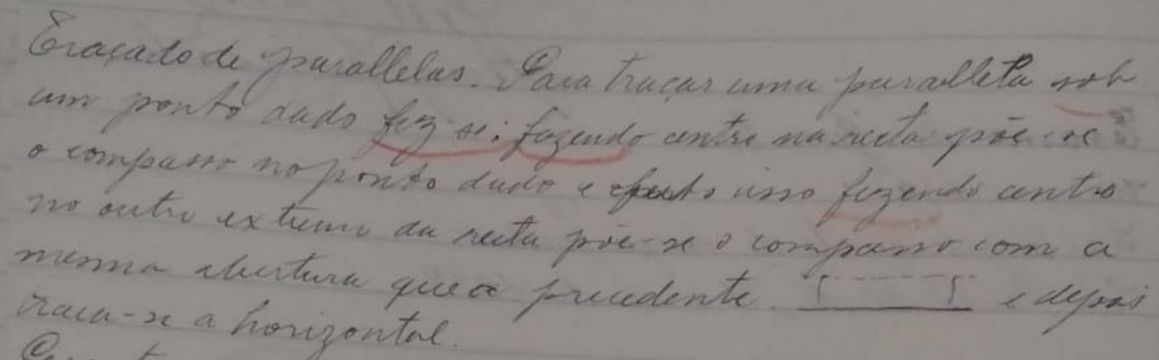 Traçado de parallelas. Para traçar uma paralleta sob
um ponto dado fez se: fazendo centro na recta põe-se
o compasso no ponto dado e feito isso fazendo centro
no outro extremo da recta põe-se o compasso com a
mesma abertura que a precedente. e depois
traca-se a horizontal.